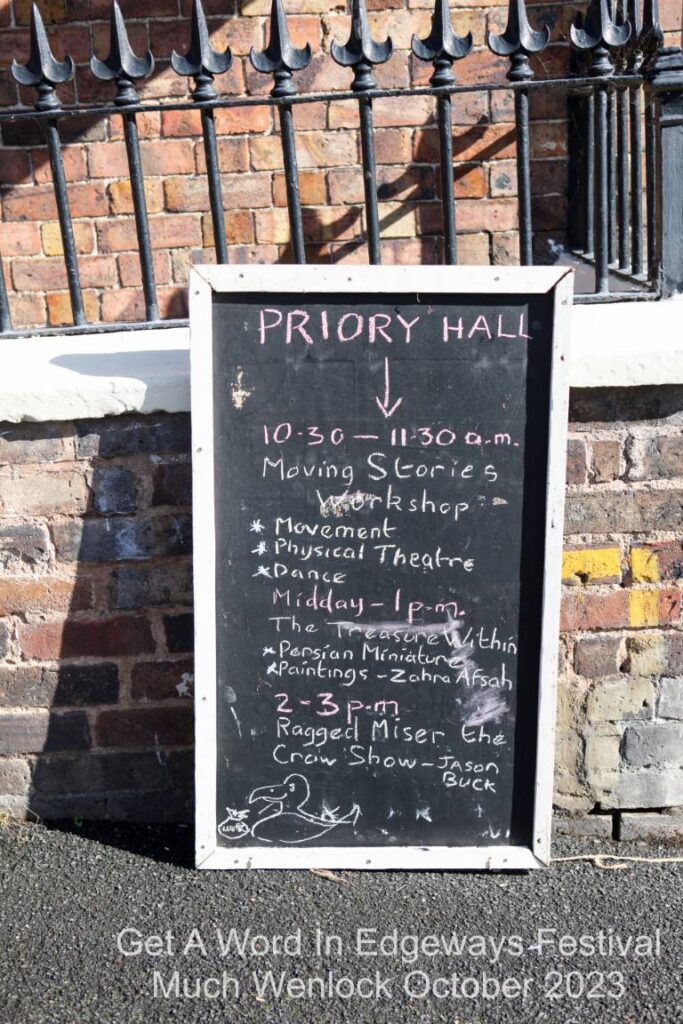 PRIORY HALL
10.30 - 11.30 a.m.
Moving Stories
Workshop
* Movement
* Physical Theatre
* Dance
Midday - 1 p.m.
The Treasure Within
* Persian Miniature
* Paintings - Zahra Afsah
2 - 3 p.m
Ragged Miser the
Crow Show - JASON
BUCK
Get A Word In Edgeways Festival
Much Wenlock October 2023